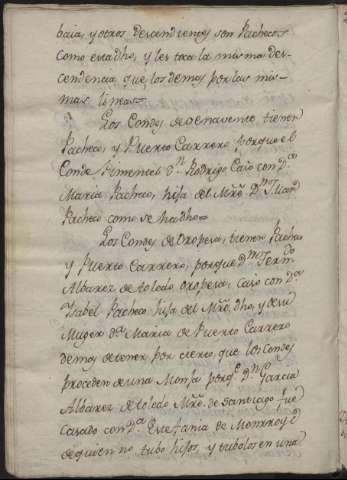 baia, y otros Descendientes son Pachecos
como esta dho, y les toca la misma des-
cendencia que los demas por las mis-
mas lineas
Los Condes de Venavente tienen
Pacheco, y Puerto Carrero porque el
Conde Pimentel Dn. Rodrigo Caso con Da.
Maria Pacheco, hija del Mre. Dn. Juan
Pacheco como se ha dho
Los Condes de Oropesa, tienen Pacheco
y Puerto Carrero, porque Dn. Ferndo.
Albarez de toledo oropesa, Caso con Da.
Ysabel Pacheco hija del Mre. dho, y de su
Muger Da. Maria de Puerto Carrero
demas de tener por cierto, que los Condes
proceden de una Monja porqe. Dn. Garcia
Albarez de toledo Mre. de Santiago fue
Casado con Da. Estefania de Monrroy
de quien no tubo hijos, y tubolos en una